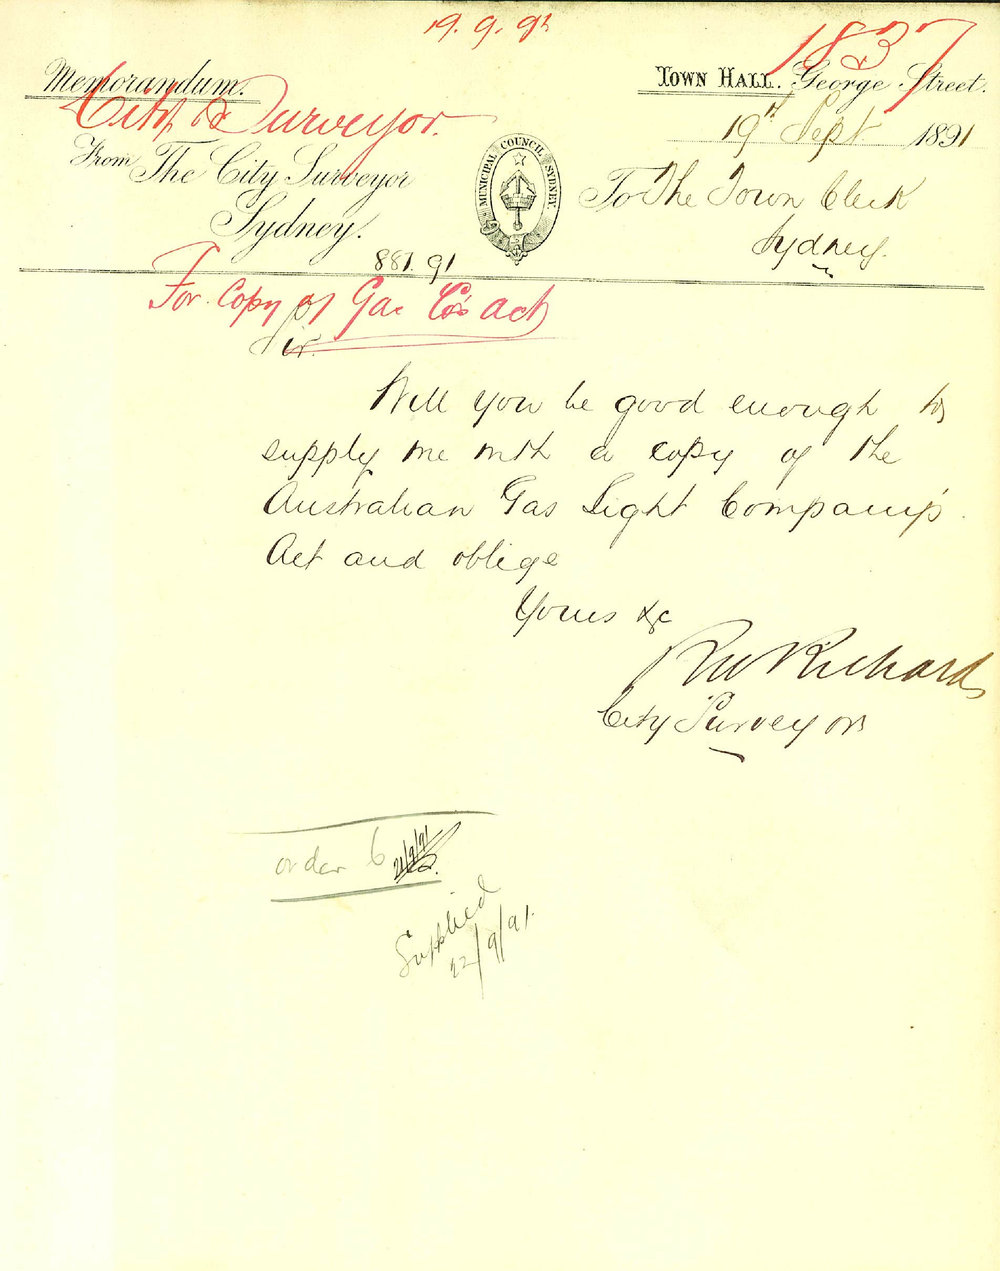 19.9.91
1837
Memorandum.
Town Hall. George Street.
City Surveyor.
19th Sept 1891
From The City Surveyor
Sydney.
MUNICIPAL COUNCIL SYDNEY.
To The Town Clerk
Sydney.
881.91
For Copy of Gas Co's Act
Sir.
Will you be good enough to
supply me with a copy of the
Australian Gas Light Company's
Act and oblige
Yours &c
RW Richards
City Surveyor
order 6
21/9/91
Supplied
22/9/91.